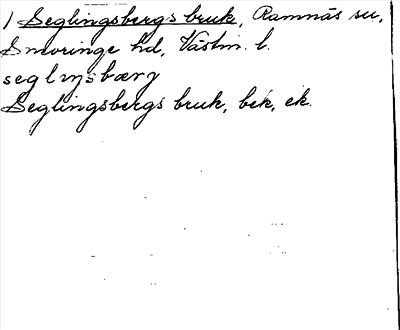 1 Seglingsbergs bruk, Ramnäs sn,
Snevringe hd, Västm. l.
seglɩŋsbærg
Seglingsbergs bruk, bek, ek.